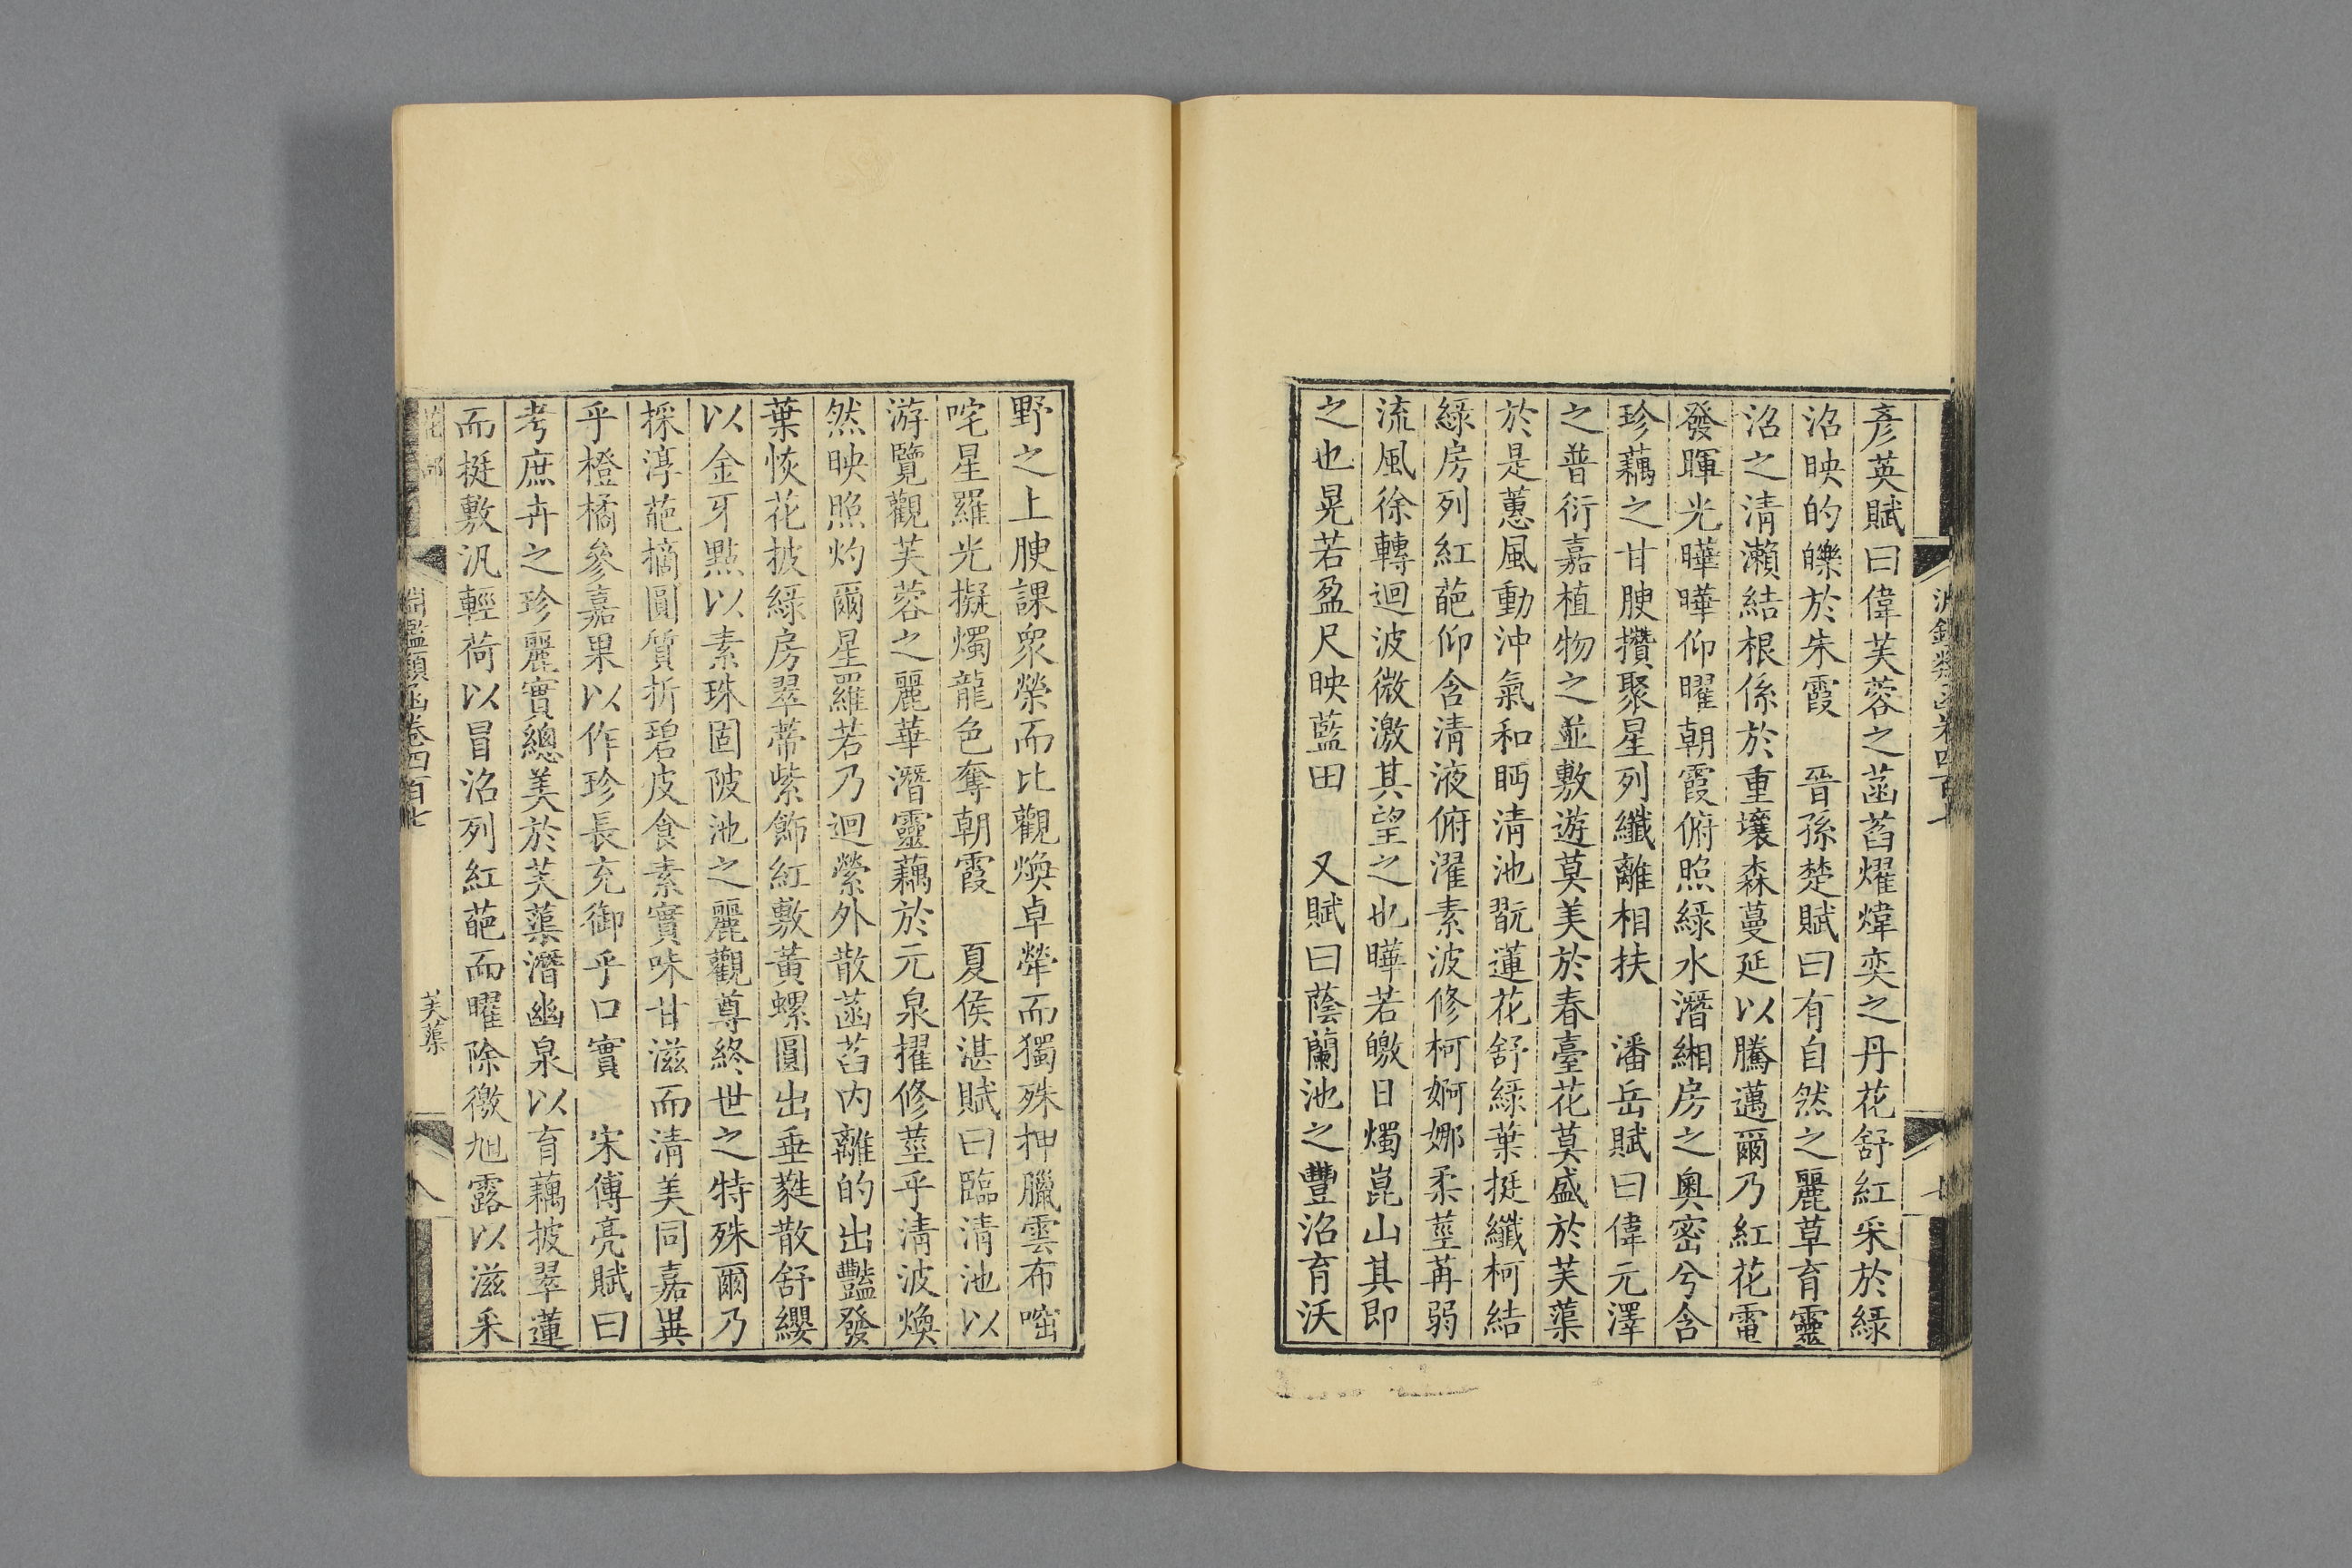 彥英賦曰偉芙蓉之菡萏燿煒奕之丹花舒紅采於綠
沼映的皪於朱霞　晉孫楚賦曰有自然之麗草育靈
沼之清瀨結根係於重壤森蔓延以騰邁爾乃紅花電
發暉光曄曄仰曜朝霞俯照綠水潛緗房之奧密兮含
珍藕之甘腴攢聚星列纖離相扶　潘岳賦曰偉元澤
之普衍嘉植物之並敷遊莫美於春臺花莫盛於芙蕖
於是蕙風動沖氣和眄清池翫蓮花舒綠葉挺纖柯結
綠房列紅葩仰含清液俯濯素波修柯婀娜柔莖苒弱
流風徐轉迴波微激其望之也曄若皦日燭崑山其即
之也晃若盈尺映藍田　又賦曰蔭蘭池之豐沼育沃
野之上腴課眾榮而比觀煥卓犖而獨殊押臘雲布㗮
咤星羅光擬燭龍色奪朝霞　夏侯湛賦曰臨清池以
游覽觀芙蓉之麗華潛靈藕於元泉擢修莖乎清波煥
然映照灼爾星羅若乃迴縈外散菡萏內離的出豔發
葉恢花披綠房翠蒂紫飾紅敷黃螺圓出垂蕤散舒纓
以金牙點以素珠固陂池之麗觀尊終世之特殊爾乃
採淳葩摘圓質折碧皮食素實味甘滋而清美同嘉異
乎橙橘參嘉果以作珍長充御乎口實　宋傅亮賦曰
考庶卉之珍麗實總美於芙蕖潛幽泉以育藕披翠蓮
而挺敷汎輕荷以冒沼列紅葩而曜除徼旭露以滋采
花部　淵鑑類函卷四百七　芙蕖　八